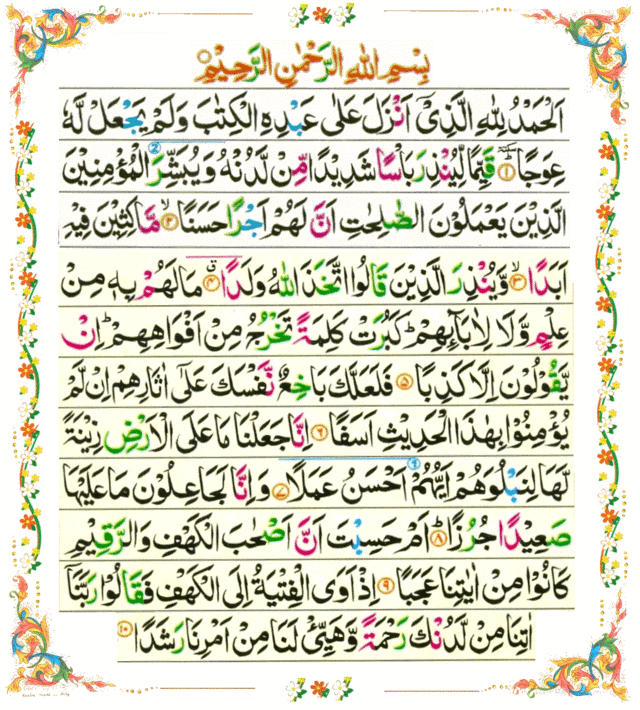 بِسْمِ اللهِ الرَّحْمٰنِ الرَّحِيْمِ
اَلْحَمْدُ لِلّٰهِ الَّذِیْۤ اَنْزَلَ عَلٰى عَبْدِهِ الْكِتٰبَ وَلَمْ يَجْعَلْ لَّهٗ
عِوَجًا ؕ ۱ قَيِّمًا لِّيُنْذِرَ بَاْسًا شَدِيْدًا مِّنْ لَّدُنْهُ وَيُبَشِّرَ الْمُؤْمِنِيْنَ
الَّذِيْنَ يَعْمَلُوْنَ الصّٰلِحٰتِ اَنَّ لَهُمْ اَجْرًا حَسَنًا ۙ ۲ مَّاكِثِيْنَ فِيْهِ
اَبَدًا ۙ ۳ وَّيُنْذِرَ الَّذِيْنَ قَالُوا اتَّخَذَ اللهُ وَلَدًا ۗ ۴ مَا لَهُمْ بِهٖ مِنْ
عِلْمٍ وَّلَا لِاٰبَآئِهِمْ ؕ كَبُرَتْ كَلِمَةً تَخْرُجُ مِنْ اَفْوَاهِهِمْ ؕ اِنْ
يَّقُوْلُوْنَ اِلَّا كَذِبًا ۵ فَلَعَلَّكَ بَاخِعٌ نَّفْسَكَ عَلٰۤى اٰثَارِهِمْ اِنْ لَّمْ
يُؤْمِنُوْا بِهٰذَا الْحَدِيْثِ اَسَفًا ۶ اِنَّا جَعَلْنَا مَا عَلَى الْاَرْضِ زِيْنَةً
لَّهَا لِنَبْلُوَهُمْ اَيُّهُمْ اَحْسَنُ عَمَلًا ۷ وَاِنَّا لَجَاعِلُوْنَ مَا عَلَيْهَا
صَعِيْدًا جُرُزًا ؕ ۸ اَمْ حَسِبْتَ اَنَّ اَصْحٰبَ الْكَهْفِ وَالرَّقِيْمِ
كَانُوْا مِنْ اٰيٰتِنَا عَجَبًا ۹ اِذْ اَوَى الْفِتْيَةُ اِلَى الْكَهْفِ فَقَالُوْا رَبَّنَاۤ
اٰتِنَا مِنْ لَّدُنْكَ رَحْمَةً وَّهَيِّئْ لَنَا مِنْ اَمْرِنَا رَشَدًا ۱۰